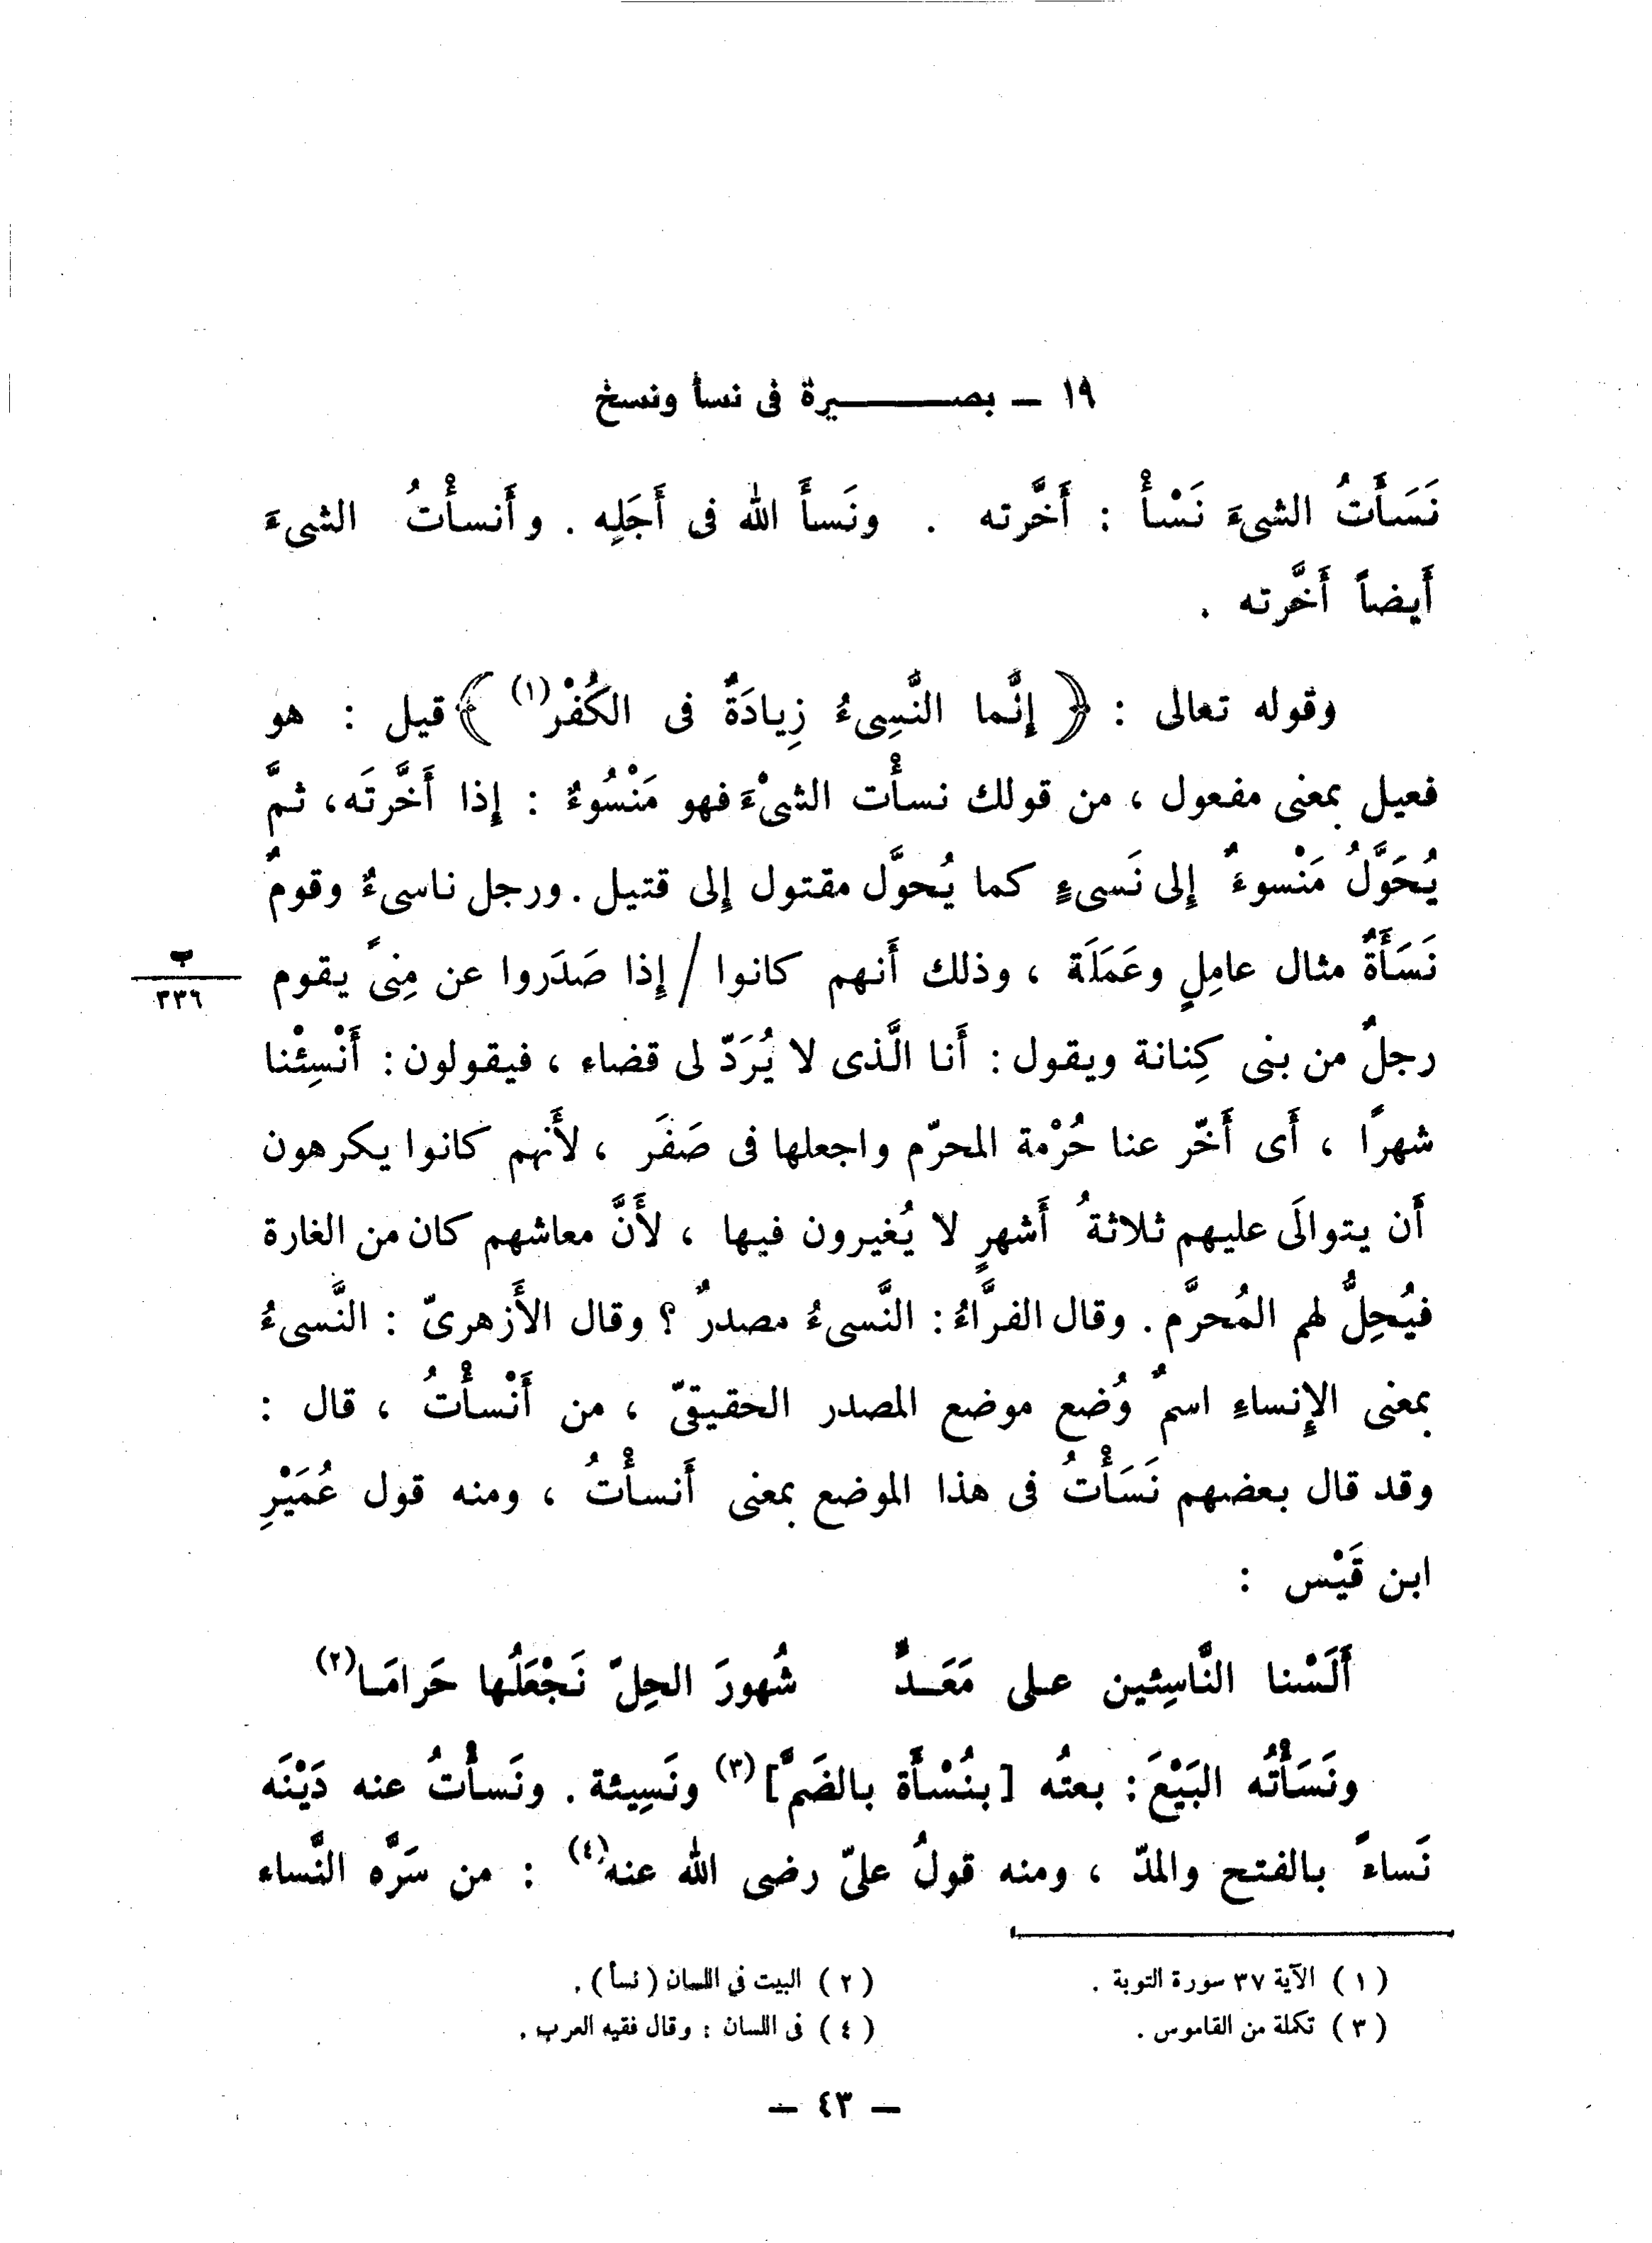 ١٩ – بصيرة فى نسأ ونسخ
نَسَأْتُ الشىءَ نَسْأً : أَخَّرته . ونَسأَ الله فى أَجَلِه . وأَنسأْتُ الشىءَ
أَيضاً أَخَّرته .
وقوله تعالى : ﴿ إِنَّما النَّسِىءُ زِيادَةٌ فى الكُفْر(١) ﴾ قيل : هو
فعيل بمعنى مفعول ، من قولك نسأْت الشىْءَ فهو مَنْسُوءٌ : إِذا أَخَّرتَه، ثمَّ
يُحَوَّلُ مَنْسوءٌ إِلى نَسىءٍ كما يُحوَّل مقتول إِلى قتيل . ورجل ناسىءٌ وقومٌ
نَسَأَةٌ مثال عامِلٍ وعَمَلَة ، وذلك أَنهم كانوا / إِذا صَدَروا عن مِنىً يقوم
ب
٣٣٦
رجلٌ من بنى كِنانة ويقول : أَنا الَّذى لا يُرَدّ لى قضاء ، فيقولون : أَنْسِئْنا
شهرًا ، أَى أَخّر عنا حُرْمة المحرّم واجعلها فى صَفَر ، لأَنهم كانوا يكرهون
أَن يتوالَى عليهم ثلاثةُ أَشهرٍ لا يُغيرون فيها ، لأَنَّ معاشهم كان من الغارة
فيُحِلُّ لهم المُحرَّم . وقال الفرَّاءُ : النَّسىءُ مصدرٌ ؟ وقال الأَزهرىّ : النَّسىءُ
بمعنى الإِنساءِ اسمٌ وُضع موضع المصدر الحقيقىّ ، من أَنْسأْتُ ، قال :
وقد قال بعضهم نَسَأْتُ فى هذا الموضع بمعنى أَنسأْتُ ، ومنه قول عُمَيْرِ
ابن قَيْس :
أَلَسْنا النَّاسِئين على مَعَدٍّ شُهورَ الحِلّ نَجْعَلُها حَرامَا(٢)
ونَسَأْتُه البَيْعَ : بعتُه [بنُسْأَة بالضَمّ](٣) ونَسِيئة . ونَسأْتُ عنه دَيْنَه
نَساءً بالفتح والمدّ ، ومنه قولُ علىّ رضى الله عنه(٤) : من سَرَّه النَّساء
(١) الآية ٣٧ سورة التوبة . (٢) البيت فى اللسان (نسأ) .
(٣) تكملة من القاموس . (٤) فى اللسان : وقال فقيه العرب .
– ٤٣ –